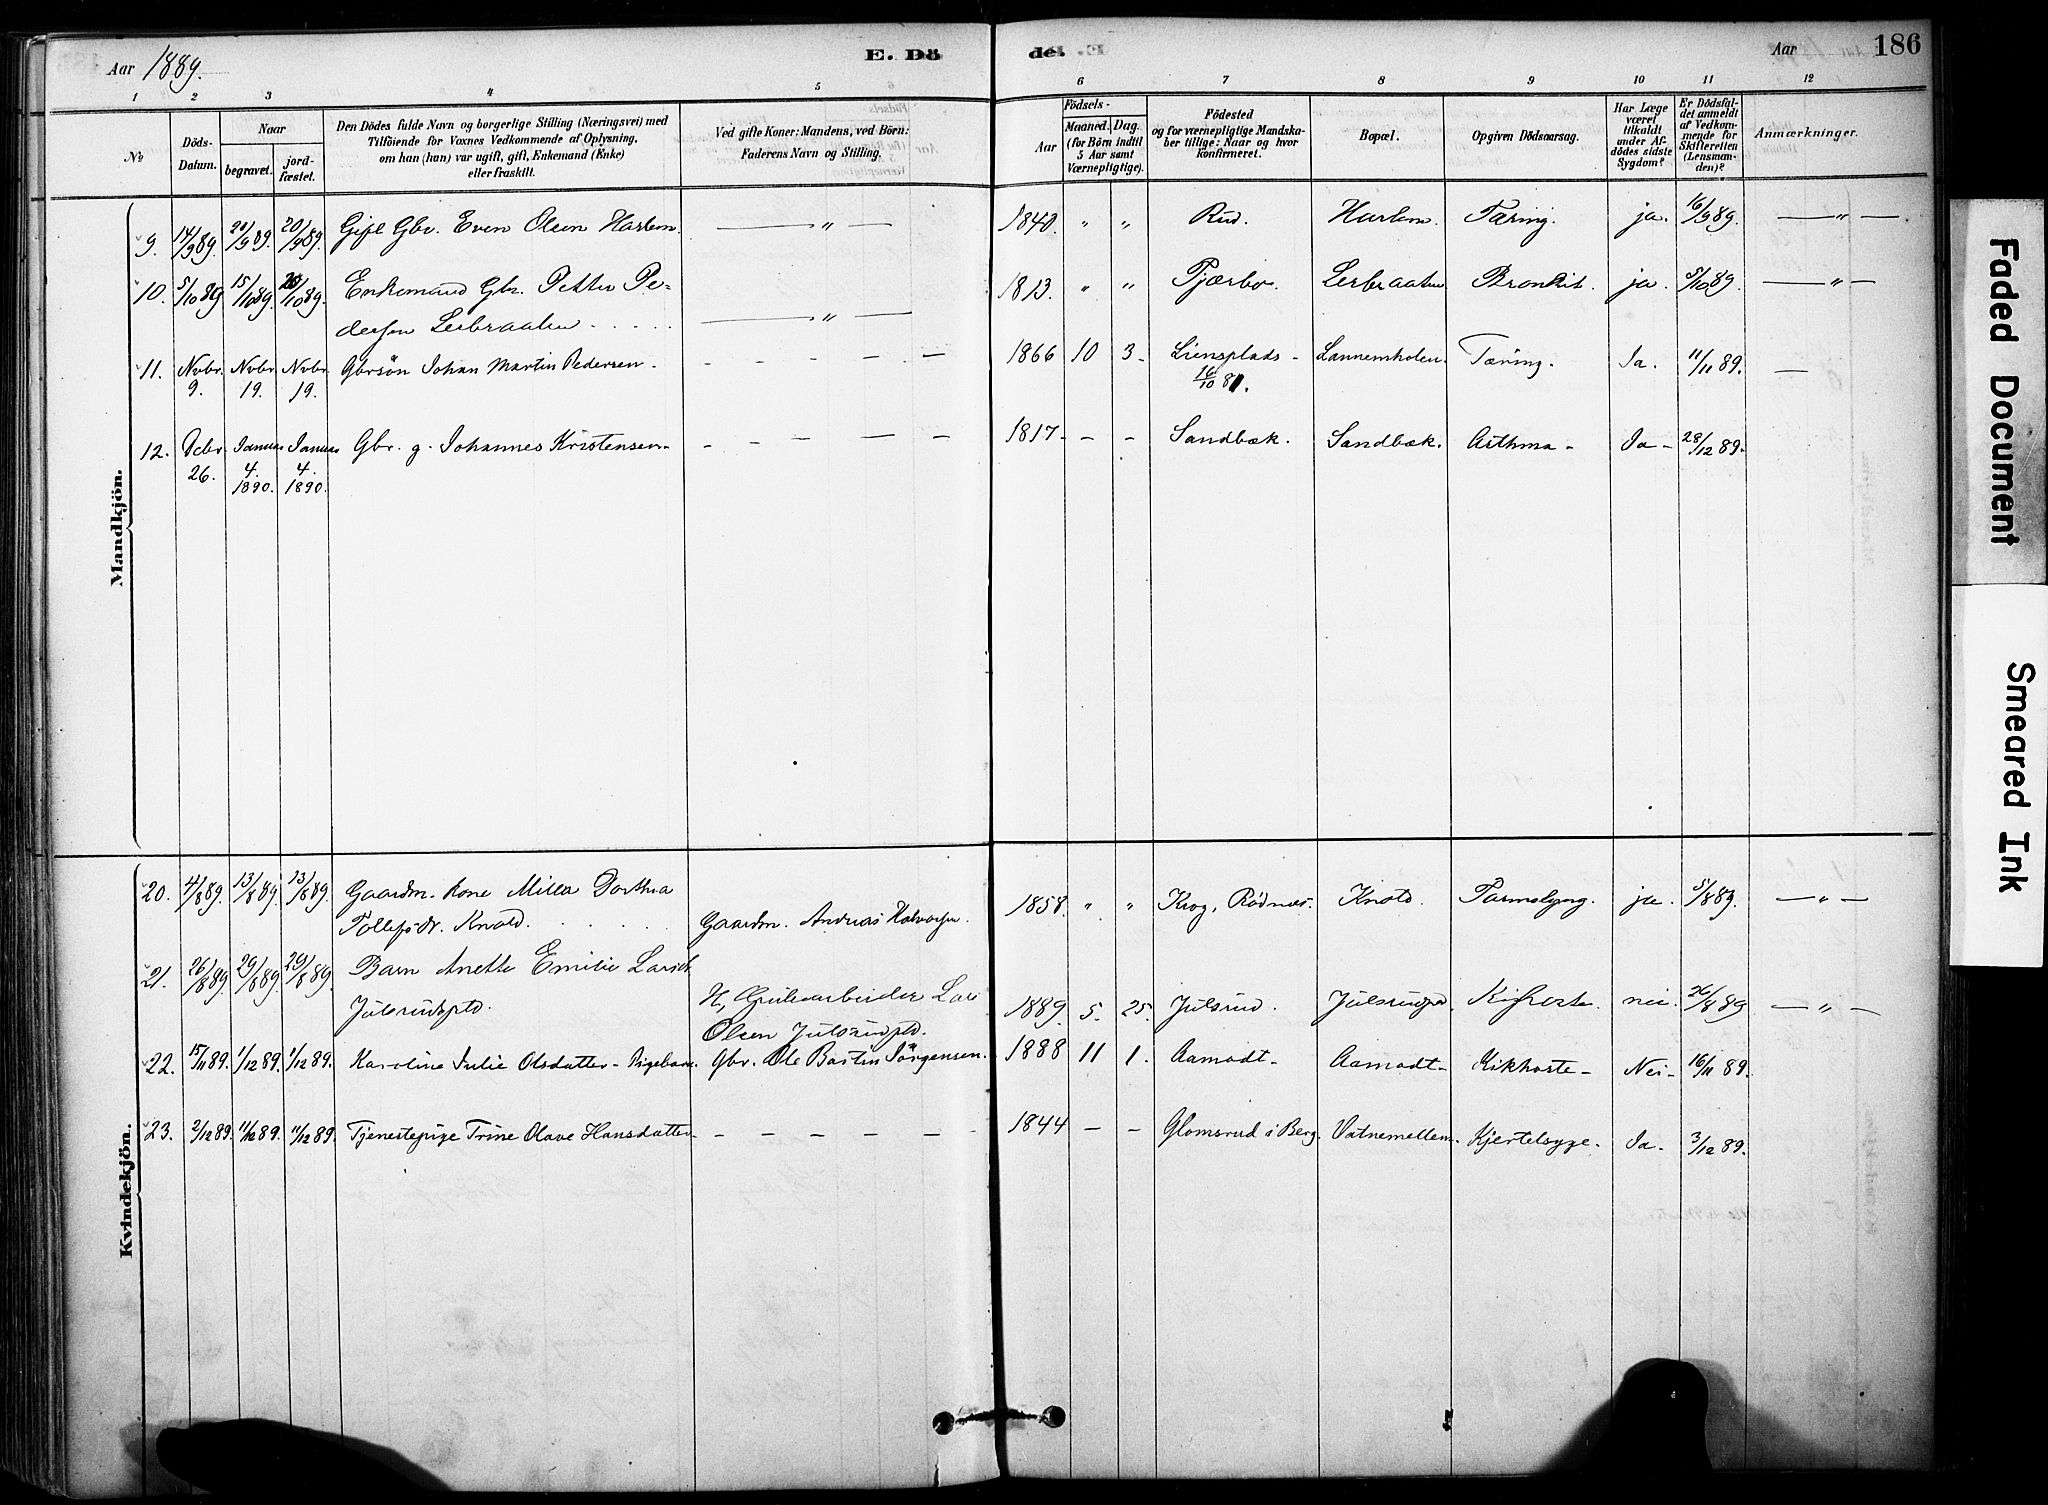 Aar 1889.
E. Dö
de.
Aar
186
1 2 3 4 5 6 7 8 9 10 11 12
No
Döds-
Datum.
Naar
begravet.
jord-
fæstet.
Den Dödes fulde Navn og borgerlige Stilling (Næringsvei) med
Tilföiende for Voxnes Vedkommende af Oplysning,
om han (hun) var ugift, gift, Enkemand (Enke)
eller fraskilt.
Ved gifte Koner: Mandens, ved Börn:
Faderens Navn og Stilling.
Födsels-
Aar
Maaned.
Dag.
(for Börn indtil
5 Aar samt
Værnepligtige).
Födested
og for værnepligtige Mandska-
ber tillige: Naar og hvor
konfirmeret.
Bopæl.
Opgiven Dödsaarsag.
Har Læge
været
tilkaldt
under Af-
dödes sidste
Sygdom?
Er Dödsfal-
det anmeldt
af Vedkom-
mende for
Skifteretten
(Lensman-
den)?
Anmærkninger.
Mandkjön.
9. 14/9 89. 20/9 89. 20/9 89. Gift Gbr. Even Olsen Harlem. — „ — 1840. „ „ Rud. Harlem. Tæring. ja. 16/9 89. — „ —
10. 5/10 89 15/10 89. /10 89. Enkemand Gbr. Petter Pe-
dersen Lerbraaten . . . . . — „ — 1813. „ „ Tjærbo. Lerbraaten Bronkit. ja. 5/10 89. — „ —
11. Nvbr. 9. Nvbr. 19. Nvbr. 19. Gbrsön Johan Martin Pedersen. - - - — — 1866 10 3. Liensplads - Tæring. Ja. 11/11 89. —
16/10 81.
12. Dcbr. 26. Januar 4. 1890. Januar 4. 1890. Gbr. g. Johannes Kristensen. - - - — — 1817. - - Sandbæk. Sandbæk. Asthma - Ja - 28/12 89.
Kvindekjön.
20. 4/8 89. 13/8 89. 13/8 89. Gaardm. Kone Milla Dorthea
Tollefsdr. Knold. . . . . . Gaardm. Andreas Halvorsen. 1858. „ „ Krog, Rödnæs. Knold. Tarmslyng. ja. 5/8 89. — „ —
21. 26/8 89. 29/8 89. 29/8 89. Barn Anette Emilie Larsdt.
Julsrudpld. H. Grubearbeider Lars
Olsen Julsrudpld. 1889. 5. 25. Julsrud. Julsrudpld Kighoste. nei. 26/8 89 — „ —
22. 15/11 89. 1/12 89. 1/12 89. Karoline Julie Olsdatter - Pigebarn. Gbr. Ole Bastin Jörgensen. 1888 11 1. Aamodt - Aamodt - Kikhoste - Nei - 16/11 89.
23. 2/12 89. 11/12 89. 11/12 89. Tjenestepige Trine Olave Hansdatter - - - - - - 1844 - - Glomsrud i Berg. Vatnemellem. Kjertelsyge. Ja. 3/12 89.
Faded Document
Smeared Ink